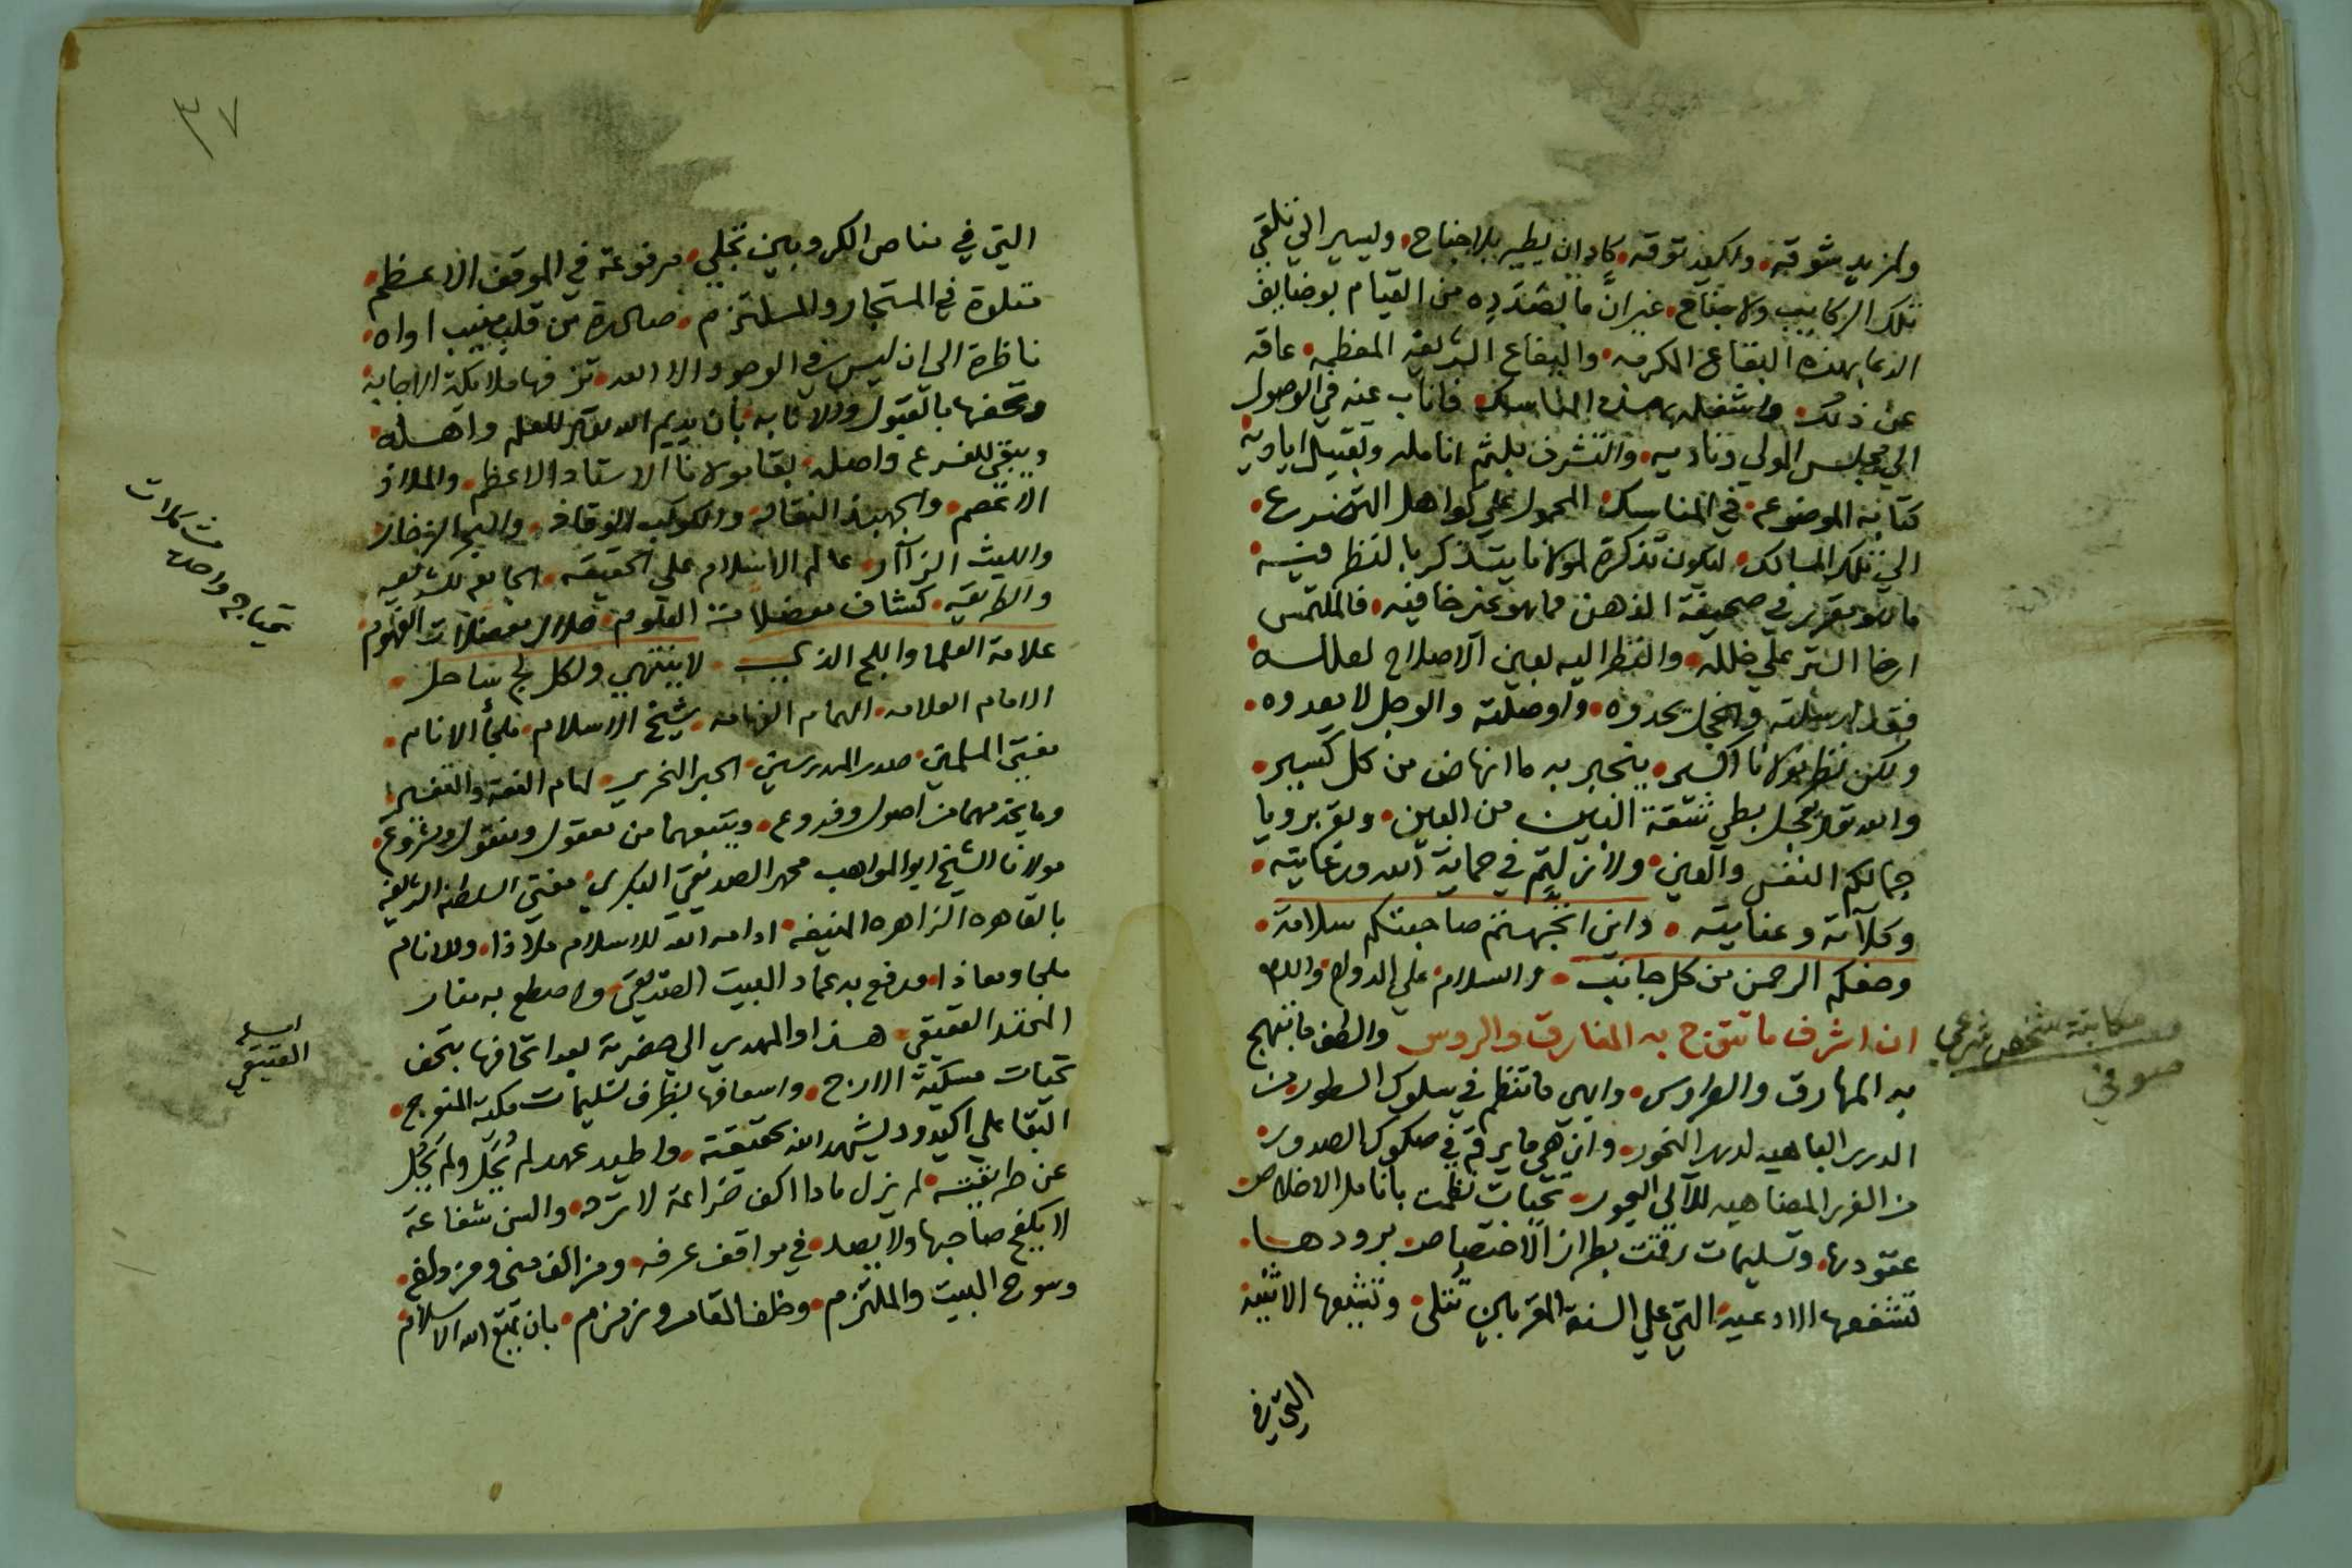 ولمزيد شوقه. ولكيد توقه. كاد ان يطير بلا جناح. وليسير الي تلقي
تلك الركايب ولا جناح. غير ان ما بصدده من القيام بوضايف
الدعا بهذه البقاع المكرمه. والبقاع الشريفه المعظمه. عاقه
عن ذلك. واشغله بهذه المناسك. فاناب عنه في الوصول
الي مجلس المولي وناديه. والتشرف بلثم انامله وتقبيل اياديه
كتابه الموضوع. في المناسك. المحمول علي كواهل التضرع.
الي تلك المسالك. ليكون تذكرة لمولانا يتذكر بالنظر فيه
ما هو مقرر في صحيفة الذهن مما هو غير خافيه. فالملتمس
ارخا الستر علي خلله. والنظر اليه بعين الاصلاح لعلله
فقد ارسلته والخجل يحدوه. واوصلته والوجل لا يعدوه.
ولكن نظر مولانا اكسير. ينجبر به ما انهاض من كل كسير.
والله تعالى يعجل بطي شقة البين من البين. ويقر برويا
جمالكم النفس والعين. ولا زلتم في حماية الله ورعايته.
وكلآته وعنايته. واين اتجهتم صاحبتكم سلامة.
وحفكم الرحمن من كل جانب. والسلام علي الدوام. والله
مكاتبة شخص شرعي
صوفي
ان اشرف ما تتوج به المفارق والروس والطف ما تبتهج
به المهارق والطروس. وابهي ما تنظم في سلوك السطور من
الدرر الباهيه لدرر النحور. وازهي ما يرقم في صكوك الصدور.
من الغرر المضاهيه للآلي البحور. تحيات نظمت بانامل الاخلاص
عقودها. وتسليمات رقمت بطراز الاختصاص برودها.
تشفعها الادعيه التي علي السنة المقربين تتلى. وتتبعها الاثنيه
التي في
٣٧
التي في مناص الكروبين تجلي. مرفوعة في الموقف الاعظم.
متلوة في المستجار والملتزم. صادرة من قلب منيب اواه.
ناظرة الى ان ليس في الوجود الا الله. تزفها ملايكة الاجابة
وتحفها بالقبول والاثابه. بان يديم الله تعالى للعلم واهله
ويبقي للفرع واصله. بقا مولانا الاستاد الاعظم. والملاذ
الاعصم. والجهبذ النقاد. والكوكب الوقاد. والبحر الزخار
والليث الزآار. عالم الاسلام علي الحقيقه. الجامع للشريعه
والطريقه. كشاف معضلات العلوم. حلال معضلات الفهوم
مشكلات
علامة العلما واللج الذي لا ينتهي ولكل لج ساحل.
الامام العلامه. الهمام الفهامه. شيخ الاسلام. ملجأ الانام.
مفتي المسلمين. صدر المدرسين. الحبر النحرير. امام الفقه والتفسير
وما يخدمهما من اصول وفروع. ويتبعهما من معقول ومنقول ومشروع.
مولانا الشيخ ابو المواهب محمد الصديقي البكري. مفتي السلطنه الشريفه
بالقاهره الزاهره المنيفه. ادامه الله للاسلام ملاذا. وللانام
ملجا ومعاذا. ورفع به عماد البيت الصديقي. واسطع به منار
المحتد العتيقي. هذا والمهدي الي حضرته بعد اتحافها بتحف
العتيقي
تحيات مسكية الارج. واسعافها بظرف تسليمات مكية المنعرج.
البقا علي اكيد ود يشهد الله بحقيقته. واطيد عهد لم يحل ولم يحل
عن طريقته. لم يزل مادا اكف ضراعة لا ترد. والسن شفاعة
لا يكفح صاحبها ولا يصد. في مواقف عرفه. ومزالف منى ومزدلفه.
وسوح البيت والملتزم. وخلف المقام وزمزم. بان يمتع الله الاسلام